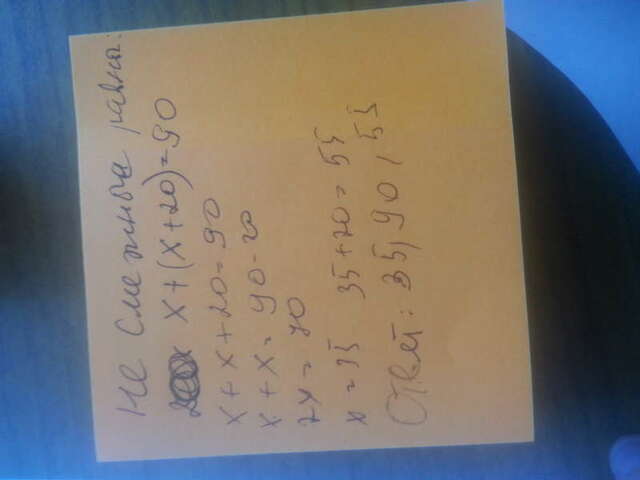 Не смежные равны:
x+(x+20)=90
x+x+20=90
x+x=90-20
2x=70
x=35 35+20=55
Ответ: 35,90,55